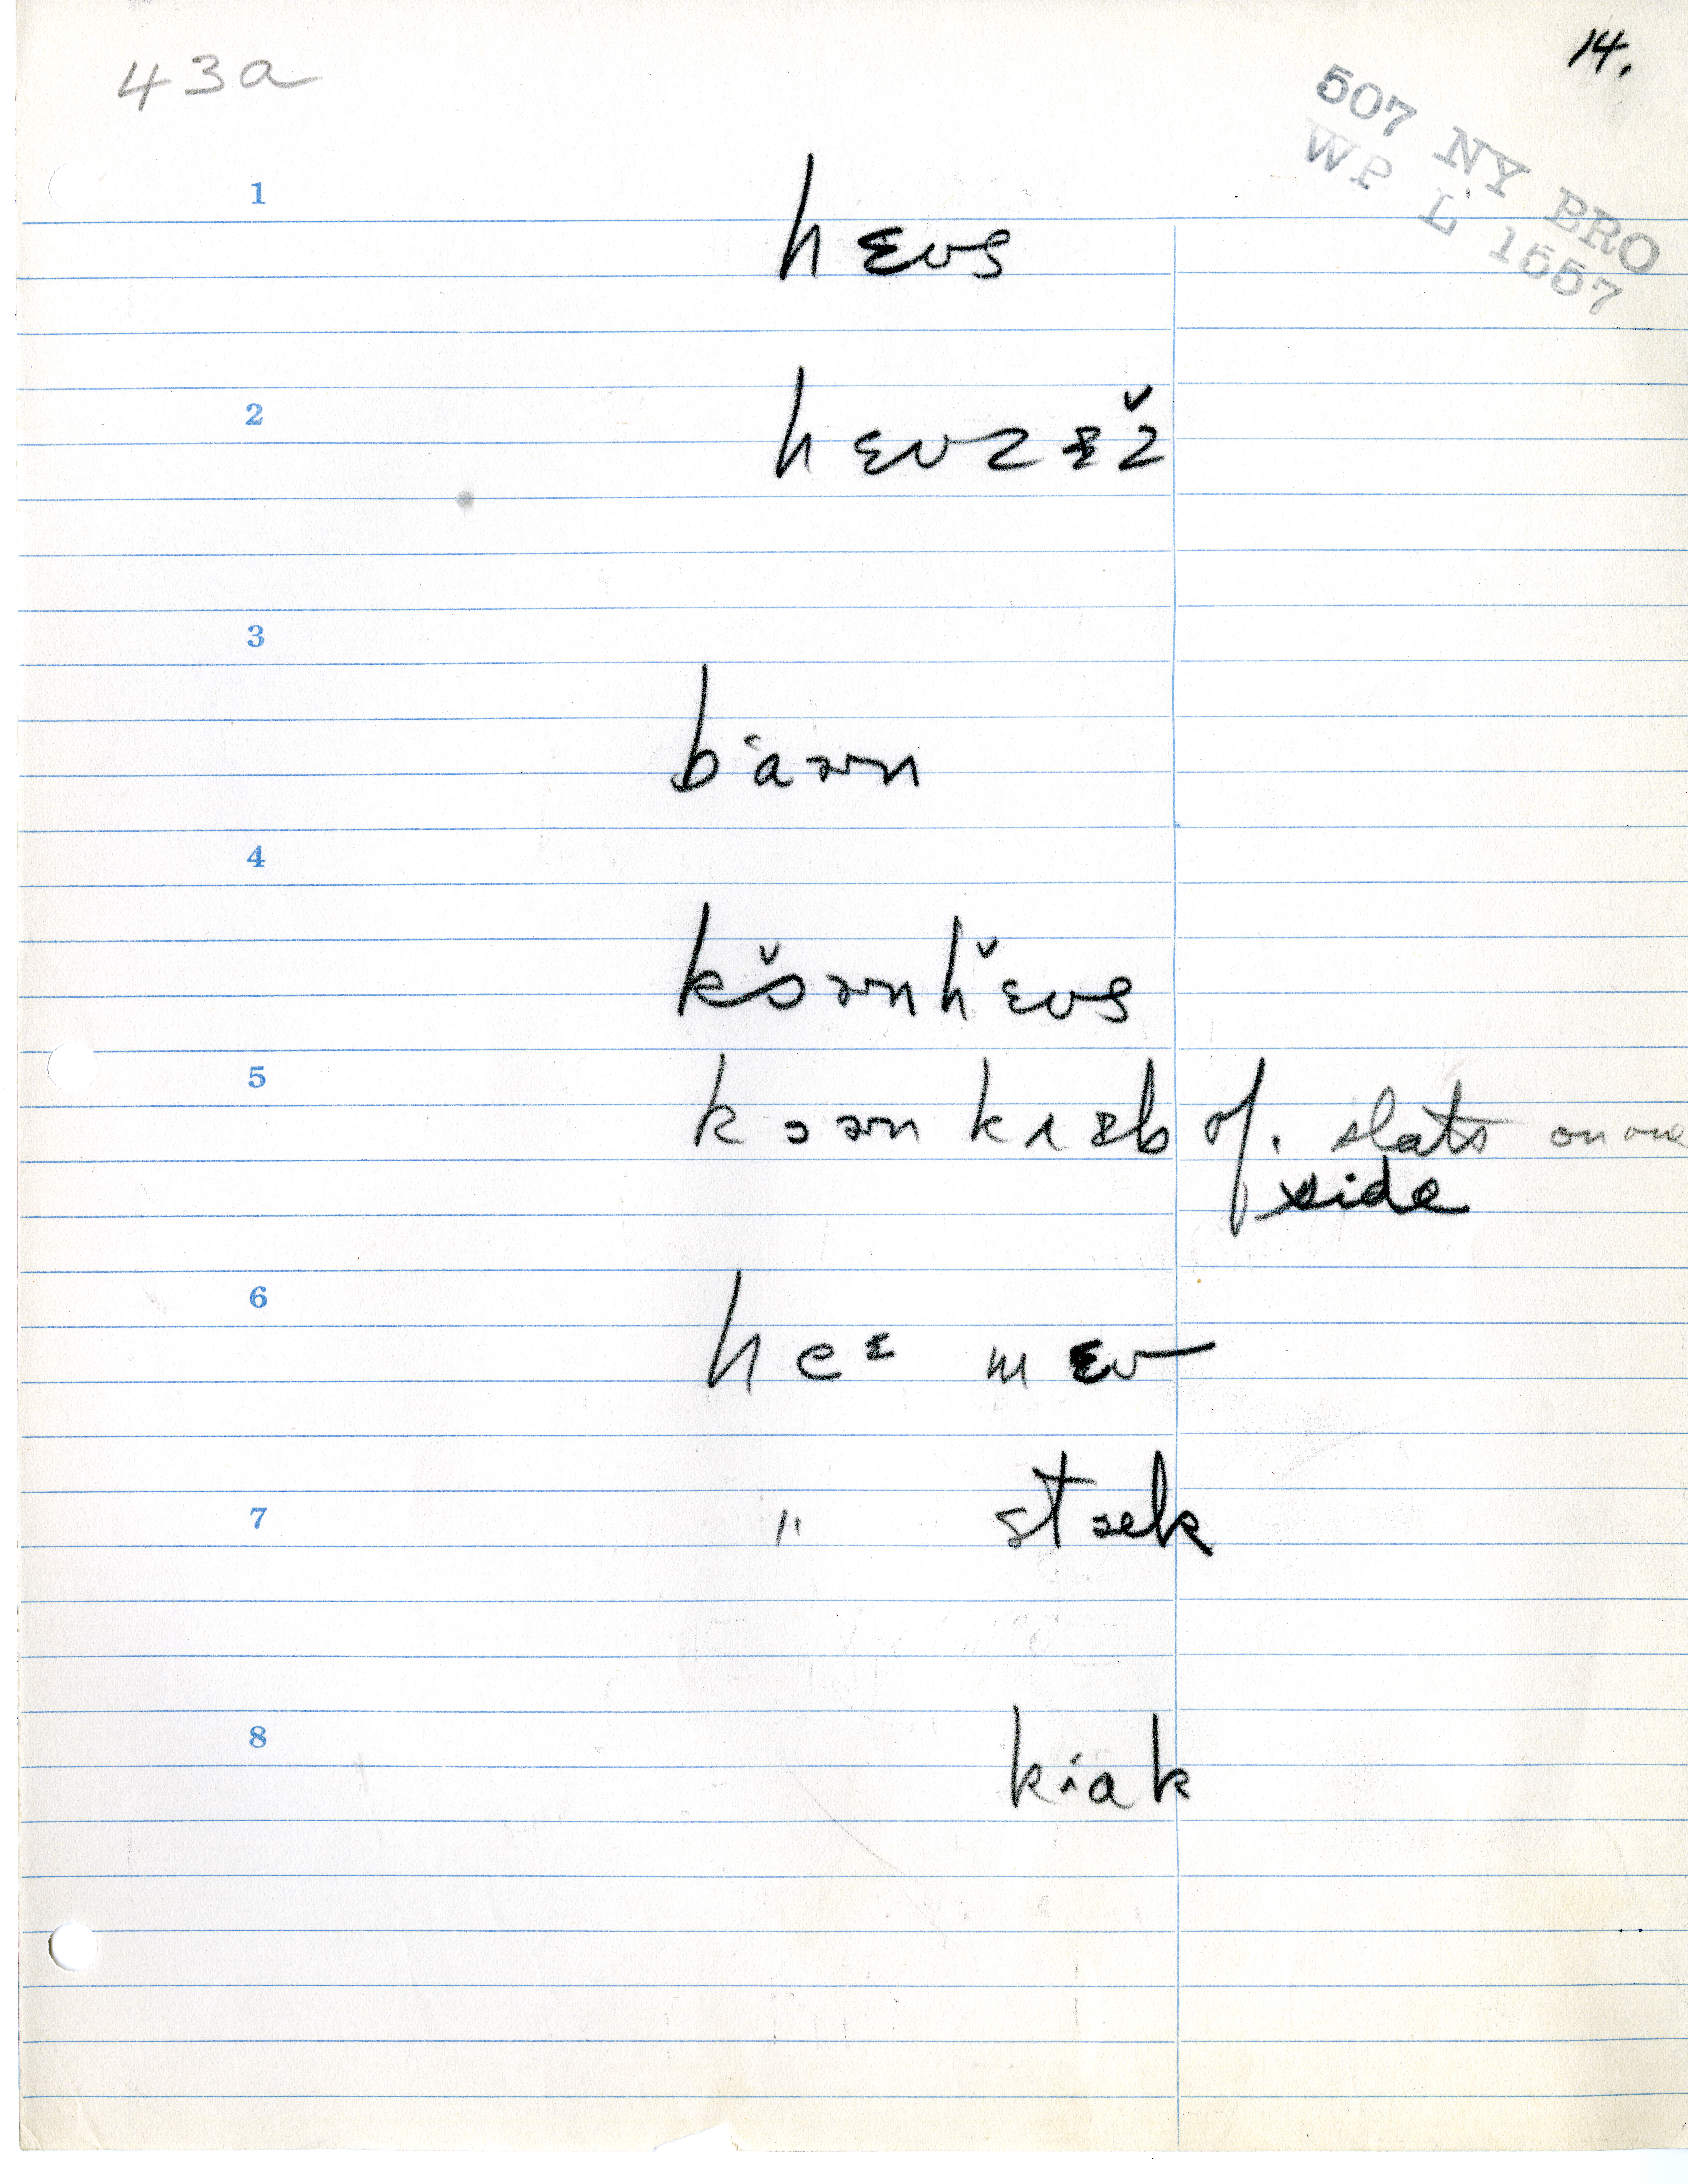 43a
14.
507 NY BRO
WP L 1557
1
hɛʊs
2
hɛʊzᵻž
3
bˈaɚn
4
kɔ̌ɚnhɛ̌ʊs
5
kɔɚn krᵻb of. slats on one
side
6
heᵋ mɛʊ
7
" stæk
8
kˑak